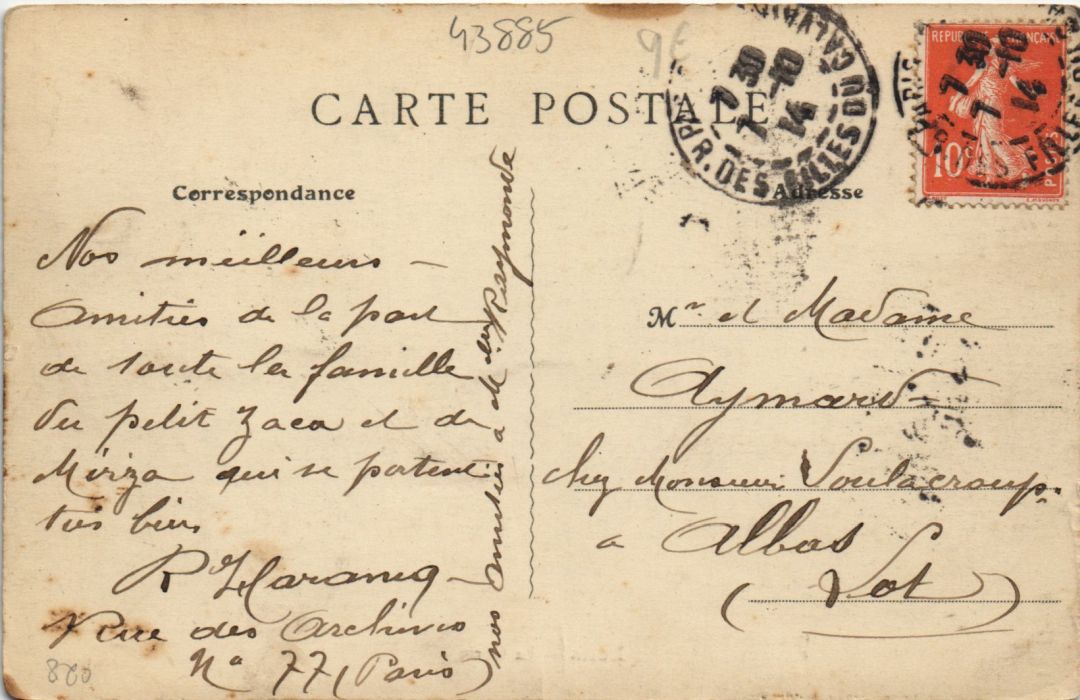 43885
9€
CARTE POSTALE
7 30
7 -10
14
PARIS
R. DES FILLES DU CALVAIRE
REPUBLIQUE FRANÇAISE
10c
POSTES
Correspondance
Nos meilleurs
Amitiés de la part
de toute la famille
du petit Zaca et de
Mirza qui se portent
très bien
R
Rue des Archives
No 77 (Paris)
nos amitiés a Raymonde
880
Adresse
Mr et Madame
Aymard
chez Monsieur Soulacroup
a Albas
(Lot)